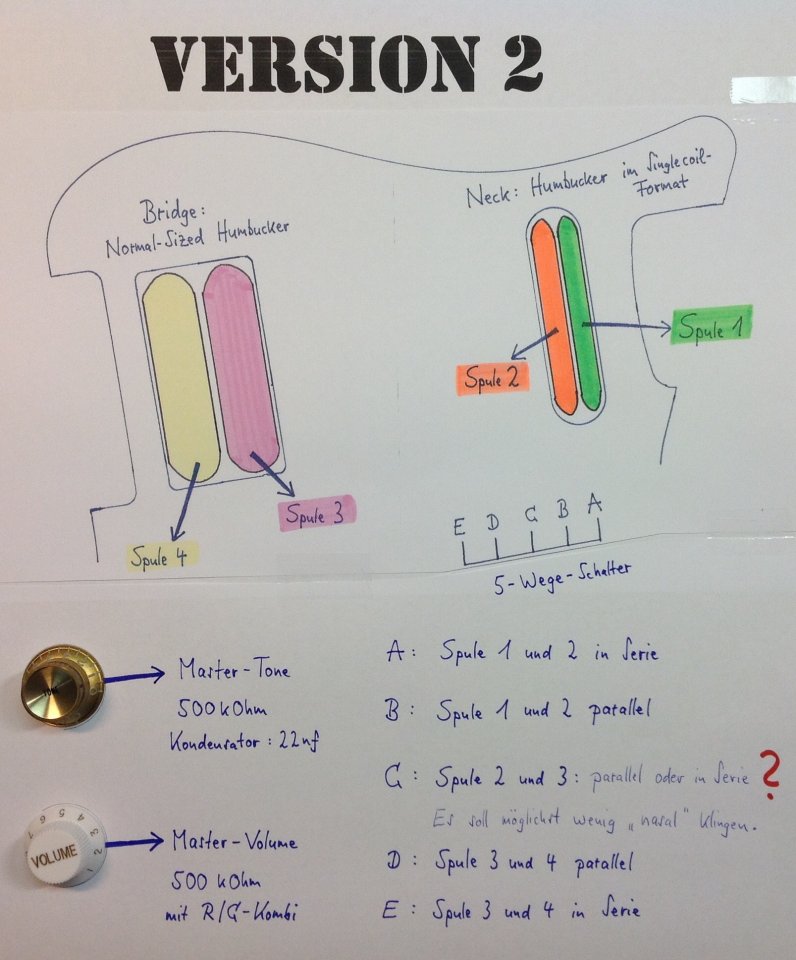 VERSION 2
Bridge:
Normal-Sized Humbucker
Neck: Humbucker im Singlecoil-
Format
Spule 1
Spule 2
Spule 3
Spule 4
E D C B A
5-Wege-Schalter
Master-Tone
500 kOhm
Kondensator: 22nf
Master-Volume
500 kOhm
mit R/C-Kombi
VOLUME
1 2 3 4 5 6 7
A: Spule 1 und 2 in Serie
B: Spule 1 und 2 parallel
C: Spule 2 und 3: parallel oder in Serie ?
Es soll möglichst wenig „nasal" klingen.
D: Spule 3 und 4 parallel
E: Spule 3 und 4 in Serie